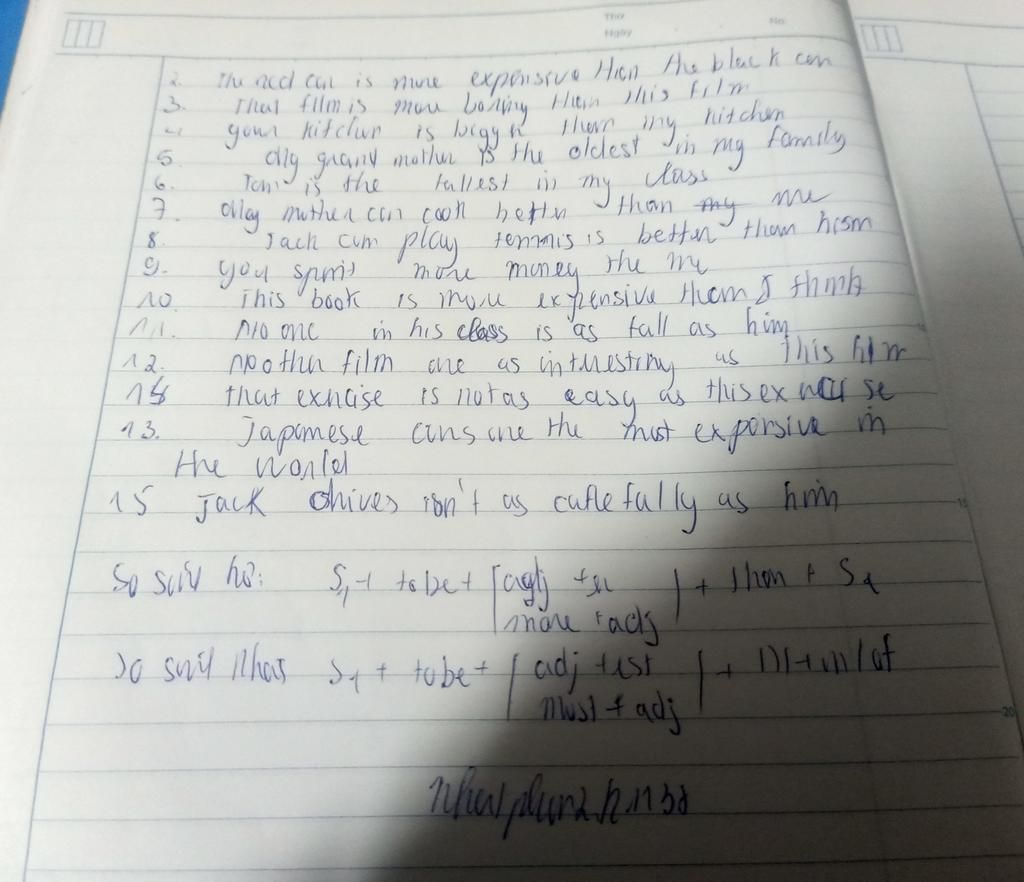 Thứ
Ngày No.
2. The red car is more expensive than the black car
3. That film is more boring than this film
4. your kitchen is bigger than my kitchen
5. My grand mother is the oldest in my family
6. Tom is the tallest in my class
7. My mother can cook better than my me
8. Jack can play tennis is better than him
9. you more money the me
10. This book is more expensive than I think
11. No one in his class is as tall as him
12. no other film are as interesting as this film
14 that exercise is not as easy as this exercise
13. Japanese cars are the most expensive in
the world
15 Jack drives isn't as carefully as him
So sánh hơn: S1 + to be + adj + er + than + S2
more + adj
So sánh nhất S1 + to be + adj + est + N + in / of
most + adj